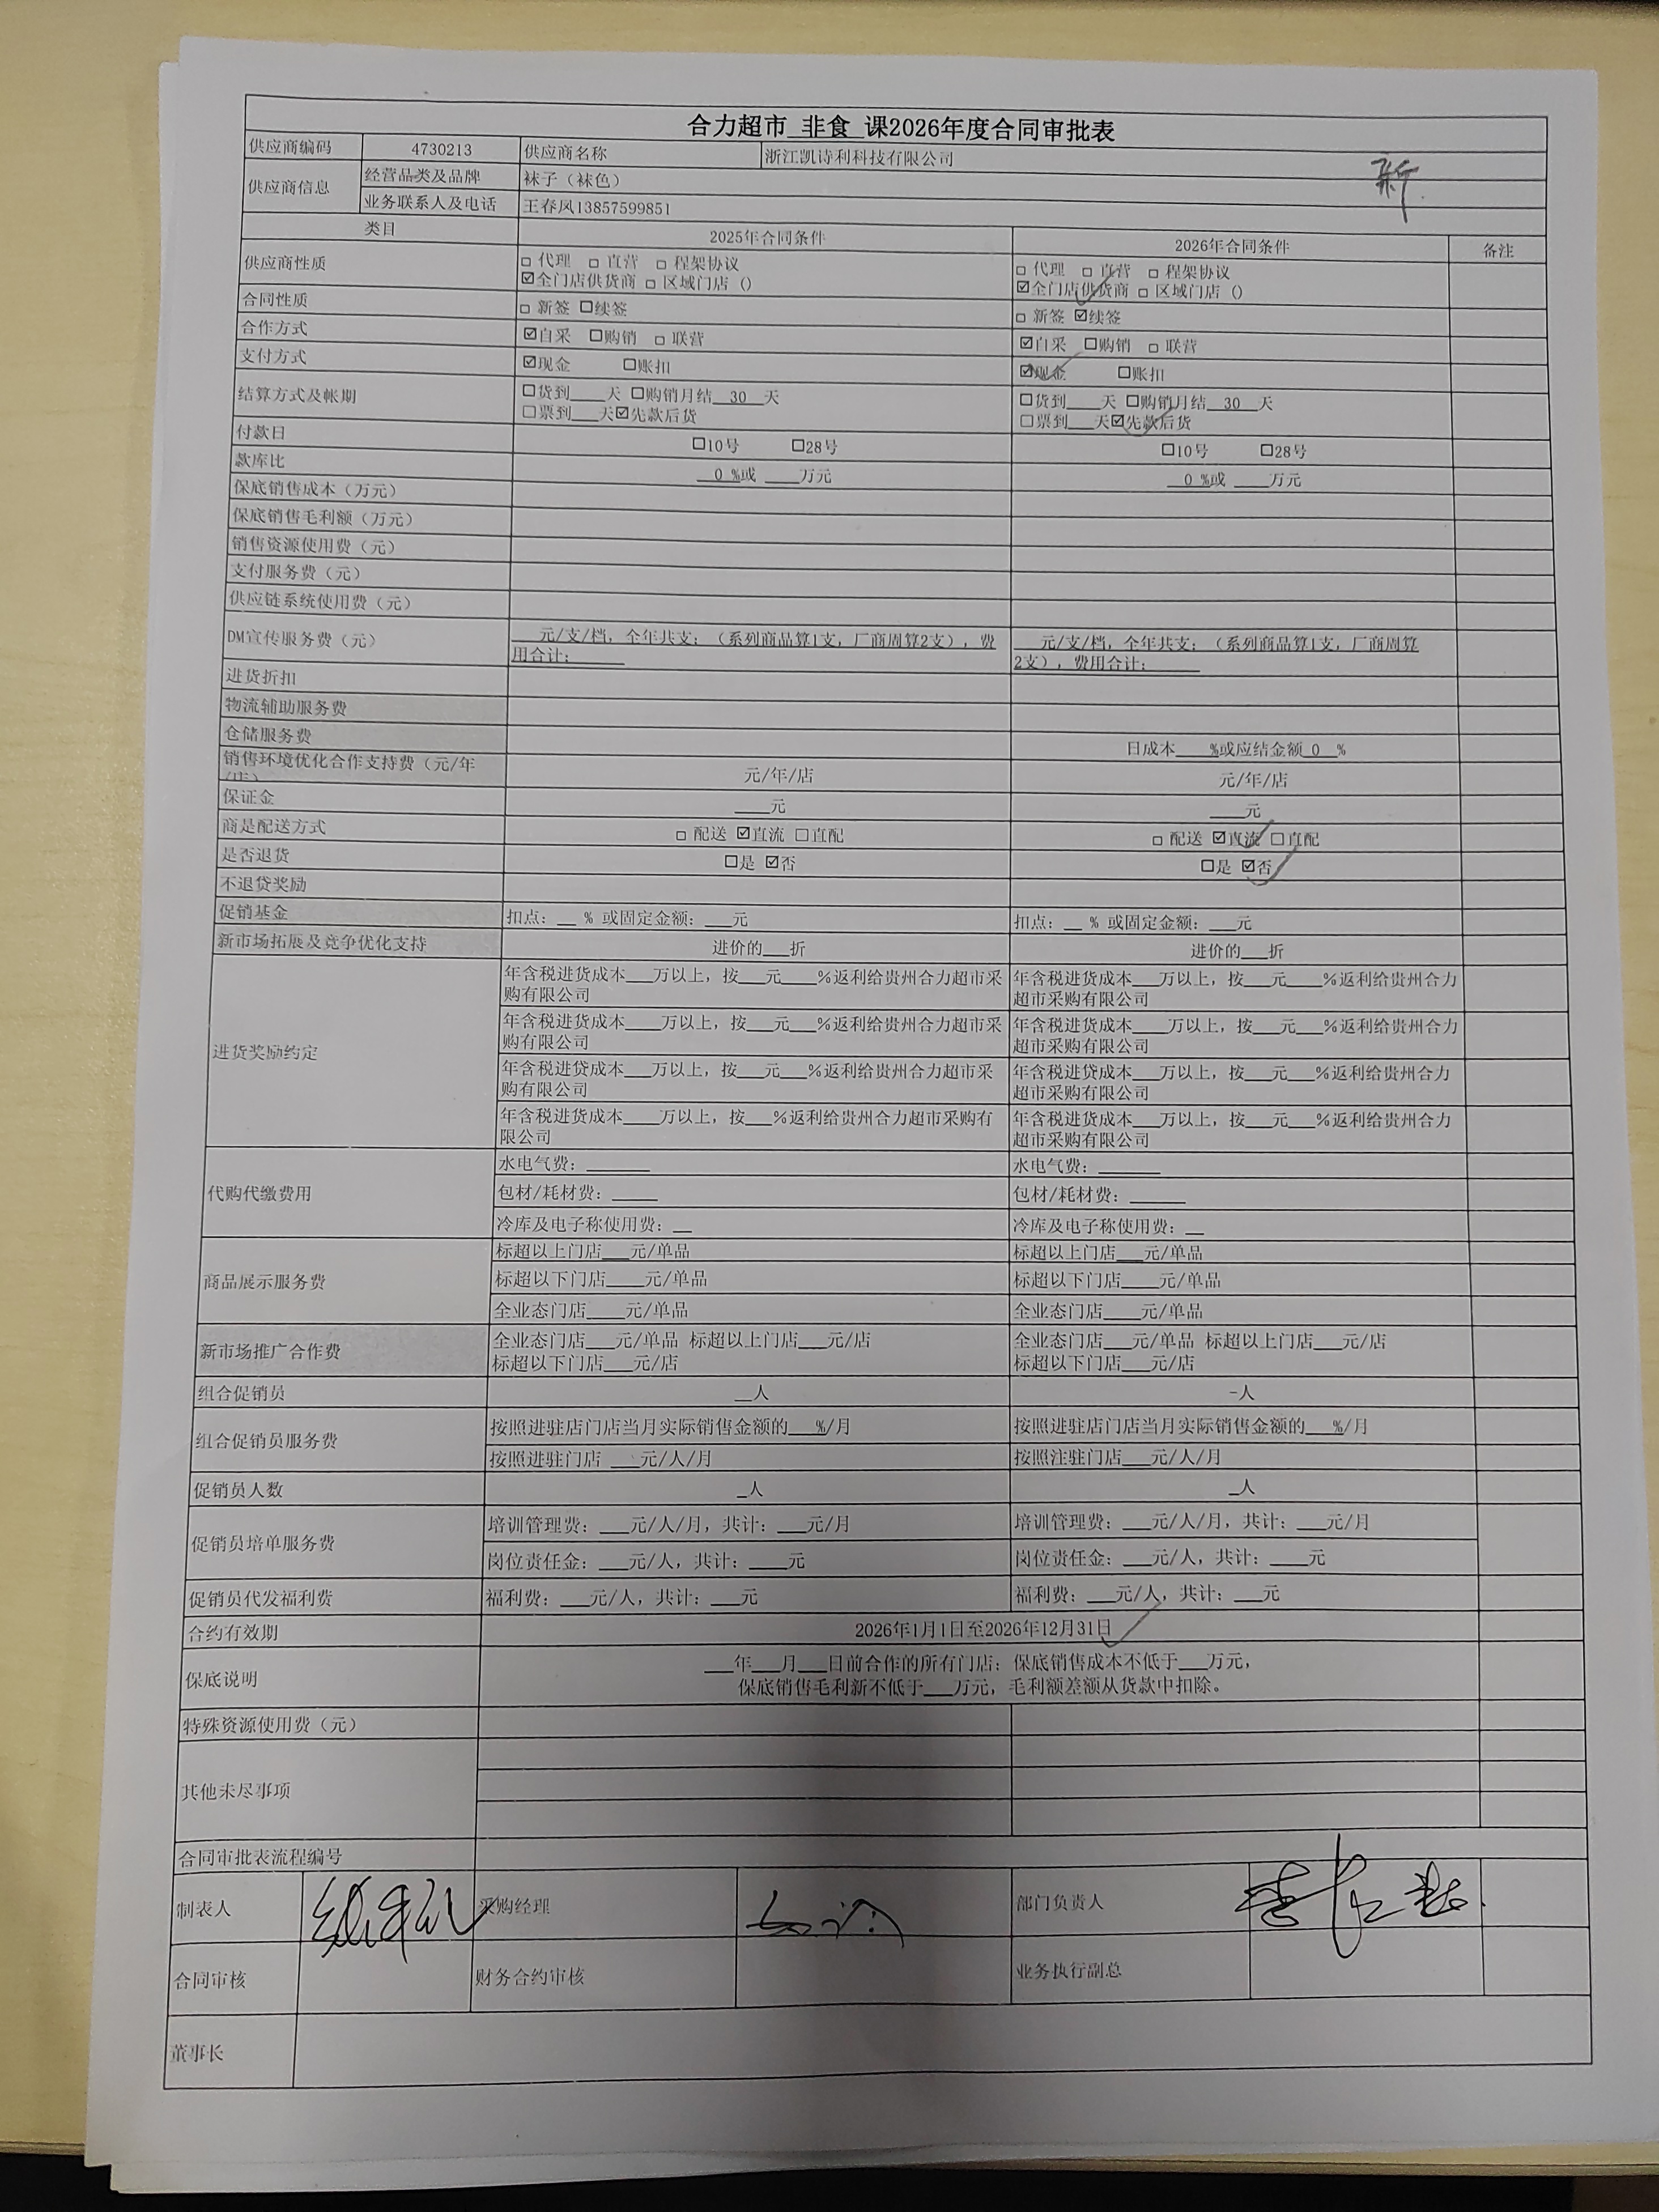 合力超市_非食_课2026年度合同审批表
供应商编码 4730213 供应商名称 浙江凯诗利科技有限公司
新
供应商信息 经营品类及品牌 袜子（袜色）
业务联系人及电话 王春凤13857599851
类目 2025年合同条件 2026年合同条件 备注
供应商性质 □ 代理 □ 直营 □ 程架协议 □ 代理 □ 直营 □ 程架协议
☑全门店供货商 □ 区域门店（） ☑全门店供货商 □ 区域门店（）
合同性质 □ 新签 □续签 □ 新签 ☑续签
合作方式 ☑自采 □购销 □ 联营 ☑自采 □购销 □ 联营
支付方式 ☑现金 □账扣 ☑现金 □账扣
结算方式及帐期 □货到____天 □购销月结__30__天 □货到____天 □购销月结__30__天
□票到___天☑先款后货 □票到___天☑先款后货
付款日 □10号 □28号 □10号 □28号
款库比 __0_%或 ____万元 __0_%或 ____万元
保底销售成本（万元）
保底销售毛利额（万元）
销售资源使用费（元）
支付服务费（元）
供应链系统使用费（元）
DM宣传服务费（元） ___元/支/档，全年共支；（系列商品算1支，厂商周算2支），费 ___元/支/档，全年共支；（系列商品算1支，厂商周算
用合计：______ 2支），费用合计：______
进货折扣
物流辅助服务费
仓储服务费 日成本____%或应结金额_0_%
销售环境优化合作支持费（元/年/店） 元/年/店 元/年/店
保证金 ____元 ____元
商是配送方式 □ 配送 ☑直流 □直配 □ 配送 ☑直流 □直配
是否退货 □是 ☑否 □是 ☑否
不退贷奖励
促销基金 扣点：__ % 或固定金额：___元 扣点：__ % 或固定金额：___元
新市场拓展及竞争优化支持 进价的___折 进价的___折
进货奖励约定 年含税进货成本___万以上，按___元____%返利给贵州合力超市采 年含税进货成本___万以上，按___元____%返利给贵州合力
购有限公司 超市采购有限公司
年含税进货成本____万以上，按___元___%返利给贵州合力超市采 年含税进货成本____万以上，按___元___%返利给贵州合力
购有限公司 超市采购有限公司
年含税进贷成本___万以上，按___元___%返利给贵州合力超市采 年含税进贷成本___万以上，按___元___%返利给贵州合力
购有限公司 超市采购有限公司
年含税进货成本____万以上，按___%返利给贵州合力超市采购有 年含税进货成本____万以上，按___元___%返利给贵州合力
限公司 超市采购有限公司
代购代缴费用 水电气费：_______ 水电气费：_______
包材/耗材费：_____ 包材/耗材费：______
冷库及电子称使用费：__ 冷库及电子称使用费：__
商品展示服务费 标超以上门店___元/单品 标超以上门店___元/单品
标超以下门店____元/单品 标超以下门店____元/单品
全业态门店____元/单品 全业态门店____元/单品
新市场推广合作费 全业态门店___元/单品 标超以上门店___元/店 全业态门店___元/单品 标超以上门店___元/店
标超以下门店___元/店 标超以下门店___元/店
组合促销员 __人 -人
组合促销员服务费 按照进驻店门店当月实际销售金额的___%/月 按照进驻店门店当月实际销售金额的___%/月
按照进驻门店 ___元/人/月 按照注驻门店___元/人/月
促销员人数 _人 _人
促销员培单服务费 培训管理费：___元/人/月，共计：___元/月 培训管理费：___元/人/月，共计：___元/月
岗位责任金：___元/人，共计：____元 岗位责任金：___元/人，共计：____元
促销员代发福利费 福利费：___元/人，共计：___元 福利费：___元/人，共计：___元
合约有效期 2026年1月1日至2026年12月31日
保底说明 ___年___月___日前合作的所有门店；保底销售成本不低于___万元，
保底销售毛利新不低于___万元，毛利额差额从货款中扣除。
特殊资源使用费（元）
其他未尽事项
合同审批表流程编号
制表人 采购经理 部门负责人
合同审核 财务合约审核 业务执行副总
董事长